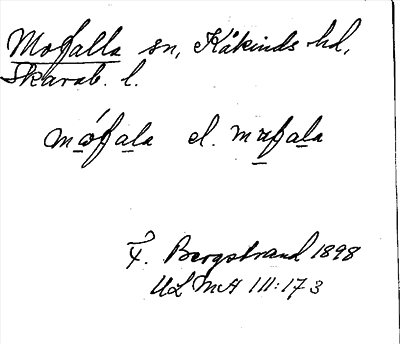 Mofalla sn, Kåkinds hd,
Skarab. l.
mófala el. mofala
F. Bergstrand 1898
ULMA 111:173